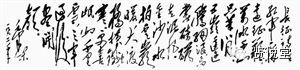 长征诗
红军不怕
远征难
万水千山
只等闲
五岭逶迤
腾细浪乌
蒙磅礴
走泥丸
金沙水
拍云崖
暖大渡
桥横铁
索寒更喜
岷山千里
雪三军
过后
尽开
颜
毛泽东